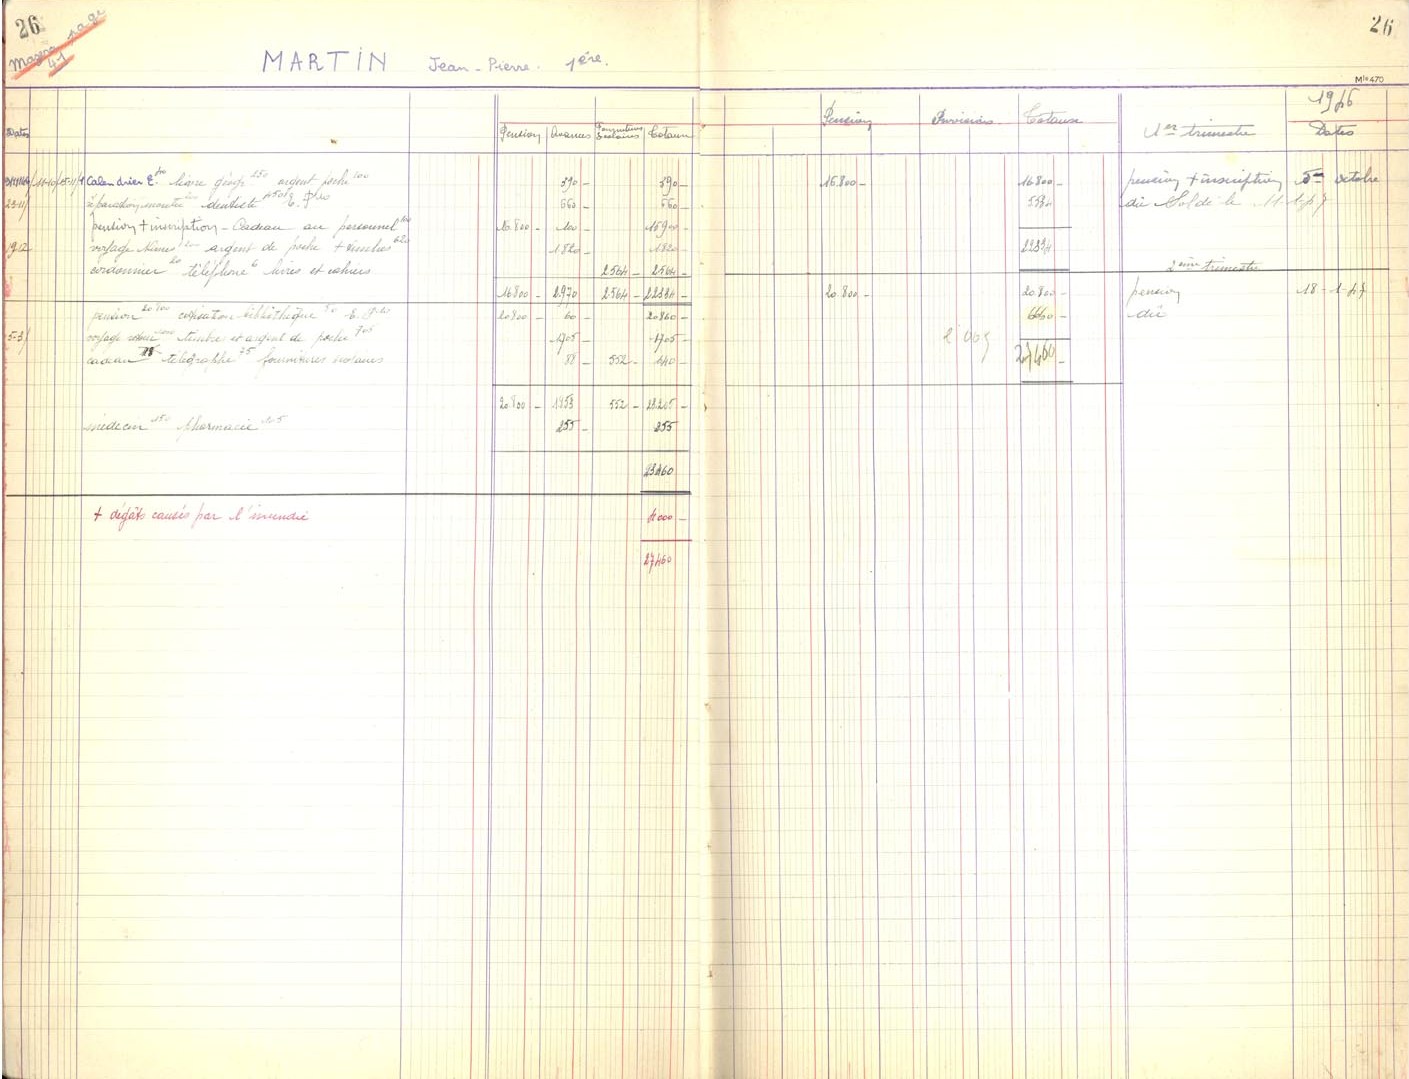 26
page
41
MARTIN Jean-Pierre. 1ère.
Dates
Pension Avances Fournitures Scolaires Totaux
Calendrier livre géogr. 250 argent poche 100 390 - 390 -
29-11/ réparation montre dentiste 660 - 660 -
pension + inscription - Cadeau au personnel 100 16800 - 100 - 16900 -
19-12 voyage argent de poche + timbres 620 1820 - 1820 -
cordonnier 20 téléphone 6 livres et cahiers 2564 - 2564 -
16800 - 2970 2564 - 22334 -
pension 20800 bibliothèque 20800 - 60 - 20860 -
5-3/ voyage timbres et argent de poche 705 1705 - 1705 -
cadeau télégraphe 75 fournitures scolaires 88 - 552 - 640 -
20800 - 1853 552 - 23205 -
médecin 150 pharmacie 105 255 - 255
23460
+ dégâts causés par l'incendie 4000 -
27460
26
Mle 470
1946
Pension Provisions Totaux 1er trimestre Dates
16800 - 16800 - pension + inscription octobre
5534 dû Soldé le 11-1-47
22334
2ème trimestre
20.800 - 20800 - pension 18-1-47
6660 - dû
27460 -